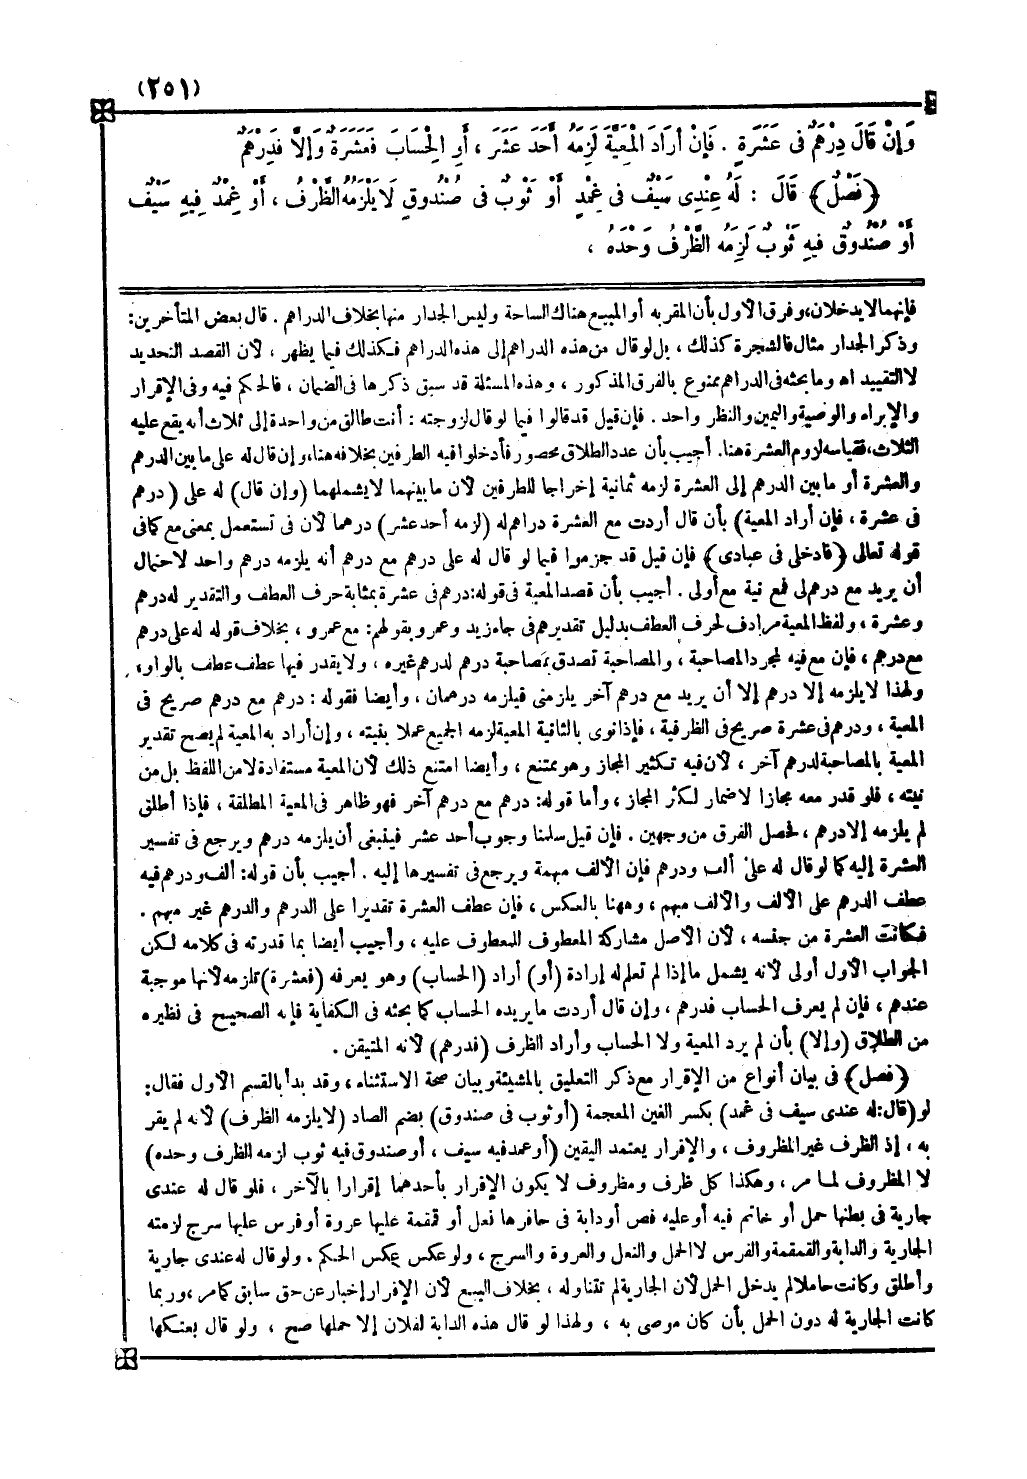 (٢٥١)
وَإِنْ قَالَ دِرْهَمٌ فِى عَشَرَةٍ . فَإِنْ أَرَادَ الْمَعِيَّةَ لَزِمَهُ أَحَدَ عَشَرَ ، أَوِ الْحِسَابَ فَعَشَرَةٌ وَإِلَّا فَدِرْهَمٌ
﴿ فَصْلٌ ﴾ قَالَ : لَهُ عِنْدِى سَيْفٌ فِى غِمْدٍ أَوْ ثَوْبٌ فِى صُنْدُوقٍ لَا يَلْزَمُهُ الظَّرْفُ ، أَوْ غِمْدٌ فِيهِ سَيْفٌ
أَوْ صُنْدُوقٌ فِيهِ ثَوْبٌ لَزِمَهُ الظَّرْفُ وَحْدَهُ ،
فإنهما لا يدخلان، وفرق الأول بأن المقر به أو المبيع هناك الساحة وليس الجدار منها بخلاف الدراهم . قال بعض المتأخرين:
وذكر الجدار مثال فالشجرة كذلك ، بل لو قال من هذه الدراهم إلى هذه الدراهم فكذلك فيما يظهر ، لأن القصد التحديد
لا التقييد اه وما بحثه فى الدراهم ممنوع بالفرق المذكور ، وهذه المسئلة قد سبق ذكرها فى الضمان ، فالحكم فيه وفى الإقرار
والإبراء والوصية واليمين والنظر واحد . فإن قيل قد قالوا فيما لو قال لزوجته : أنت طالق من واحدة إلى ثلاث أنه يقع عليه
الثلاث، فقياسه لزوم العشرة هنا. أجيب بأن عدد الطلاق محصور فأدخلوا فيه الطرفين بخلافه هنا، وإن قال له على ما بين الدرهم
والعشرة أو ما بين الدرهم إلى العشرة لزمه ثمانية إخراجا للطرفين لأن ما بينهما لا يشملهما (وإن قال) له على (درهم
فى عشرة ، فإن أراد المعية) بأن قال أردت مع العشرة دراهم له (لزمه أحد عشر) درهما لأن فى تستعمل بمعنى مع كما فى
قوله تعالى ﴿فادخلى فى عبادى﴾ فإن قيل قد جزموا فيما لو قال له على درهم مع درهم أنه يلزمه درهم واحد لاحتمال
أن يريد مع درهم لى فمع نية مع أولى . أجيب بأن قصد المعية فى قوله: درهم فى عشرة بمثابة حرف العطف والتقدير له درهم
وعشرة ، ولفظ المعية مرادف لحرف العطف بدليل تقديرهم فى جاء زيد وعمرو بقولهم: مع عمرو ، بخلاف قوله له على درهم
مع درهم ، فإن مع فيه لمجرد المصاحبة ، والمصاحبة تصدق بمصاحبة درهم لدرهم غيره ، ولا يقدر فيها عطف عطف بالواو،
ولهذا لا يلزمه إلا درهم إلا أن يريد مع درهم آخر يلزمنى فيلزمه درهمان ، وأيضا فقوله : درهم مع درهم صريح فى
المعية ، ودرهم فى عشرة صريح فى الظرفية ، فإذا نوى بالثانية المعية لزمه الجميع عملا بنيته ، وإن أراد به المعية لم يصح تقدير
المعية بالمصاحبة لدرهم آخر ، لأن فيه تكثير المجاز وهو ممتنع ، وأيضا امتنع ذلك لأن المعية مستفادة لا من اللفظ بل من
نيته ، فلو قدر معه مجازا لاضمار لكثر المجاز ، وأما قوله: درهم مع درهم آخر فهو ظاهر فى المعية المطلقة ، فإذا أطلق
لم يلزمه إلا درهم ، فحصل الفرق من وجهين . فإن قيل سلمنا وجوب أحد عشر فينبغى أن يلزمه درهم ويرجع فى تفسير
العشرة إليه كما لو قال له علىّ ألف ودرهم فإن الألف مبهمة ويرجع فى تفسيرها إليه . أجيب بأن قوله: ألف ودرهم فيه
عطف الدرهم على الألف والألف مبهم ، وههنا بالعكس ، فإن عطف العشرة تقديرا على الدرهم والدرهم غير مبهم .
فكانت العشرة من جنسه ، لأن الأصل مشاركة المعطوف للمعطوف عليه ، وأجيب أيضا بما قدرته فى كلامه لكن
الجواب الأول أولى لأنه يشمل ما إذا لم تعلم له إرادة (أو) أراد (الحساب) وهو يعرفه (فعشرة) تلزمه لأنها موجبة
عندهم ، فإن لم يعرف الحساب فدرهم ، وإن قال أردت ما يريده الحساب كما بحثه فى الكفاية فإنه الصحيح فى نظيره
من الطلاق (وإلا) بأن لم يرد المعية ولا الحساب وأراد الظرف (فدرهم) لأنه المتيقن .
﴿فصل﴾ فى بيان أنواع من الإقرار مع ذكر التعليق بالمشيئة وبيان صحة الاستثناء ، وقد بدأ بالقسم الأول فقال:
لو (قال: له عندى سيف فى غمد) بكسر الغين المعجمة (أو ثوب فى صندوق) بضم الصاد (لا يلزمه الظرف) لأنه لم يقر
به ، إذ الظرف غير المظروف ، والإقرار يعتمد اليقين (أو غمد فيه سيف ، أو صندوق فيه ثوب لزمه الظرف وحده)
لا المظروف لما مر ، وهكذا كل ظرف ومظروف لا يكون الإقرار بأحدهما إقرارا بالآخر ، فلو قال له عندى
جارية فى بطنها حمل أو خاتم فيه أو عليه فص أو دابة فى حافرها نعل أو قمقمة عليها عروة أو فرس عليها سرج لزمته
الجارية والدابة والقمقمة والفرس لا الحمل والنعل والعروة والسرج ، ولو عكس عكس الحكم . ولو قال له عندى جارية
وأطلق وكانت حاملا لم يدخل الحمل لأن الجارية لم تتناوله ، بخلاف البيع لأن الإقرار إخبار عن حق سابق كما مر ، وربما
كانت الجارية له دون الحمل بأن كان موصى به ، ولهذا لو قال هذه الدابة لفلان إلا حملها صح ، ولو قال بعتكها